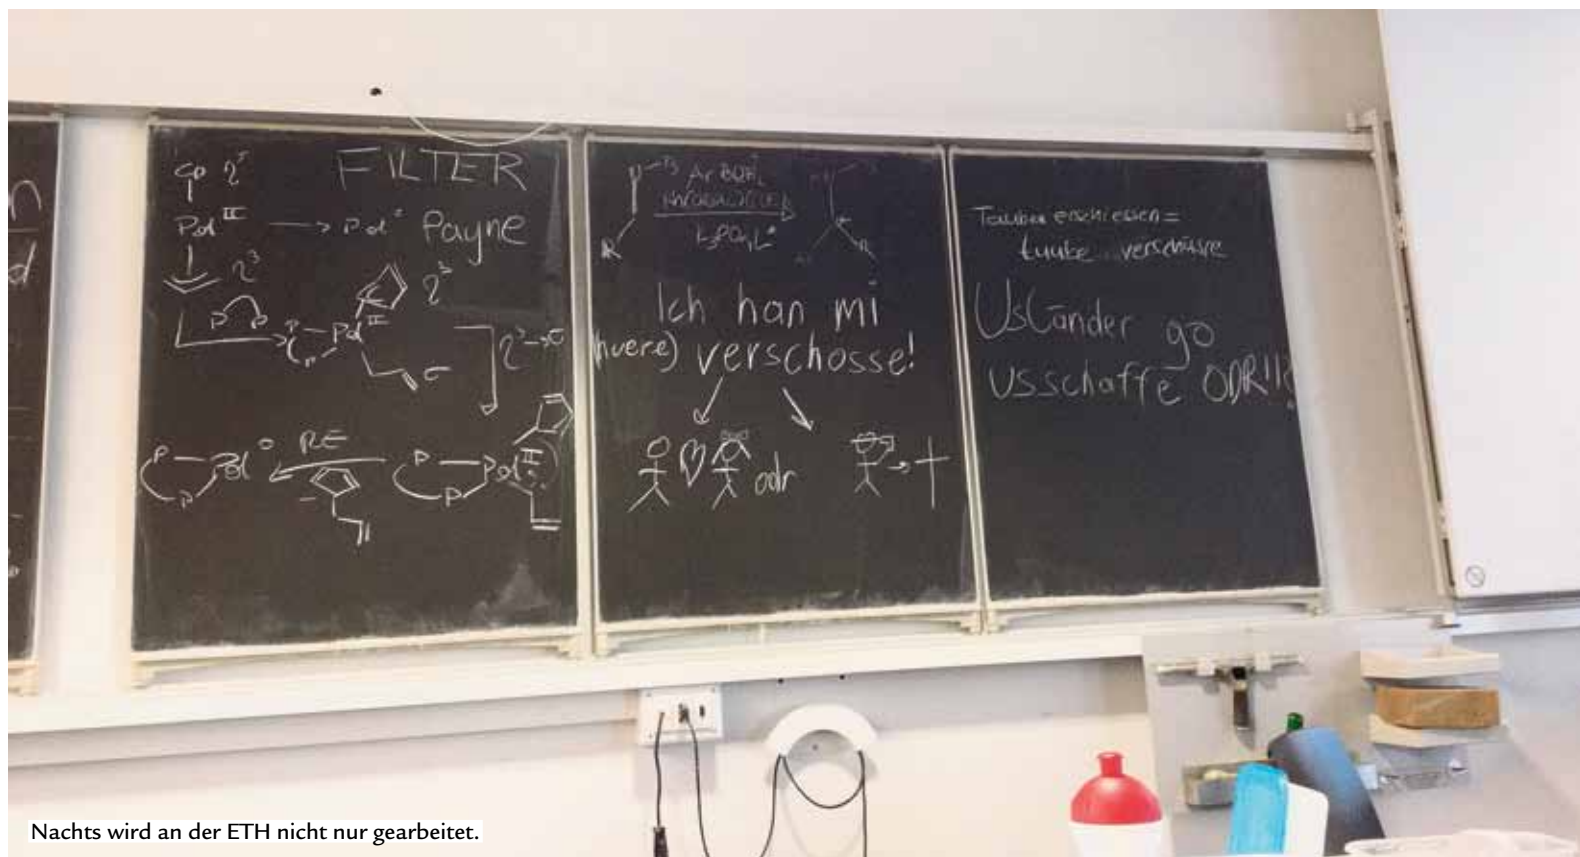 Cp η⁵
FILTER
Pd II → Pd⁰ Payne
η³
P P
P Pd II η³
P
σ
η³→σ
P Pd⁰ RE P Pd II
P P
R
Ich han mi
(huere) verschosse!
odr
Tauben erschiessen =
tuube verschüsse
Usländer go
usschaffe ODR!!?
Nachts wird an der ETH nicht nur gearbeitet.